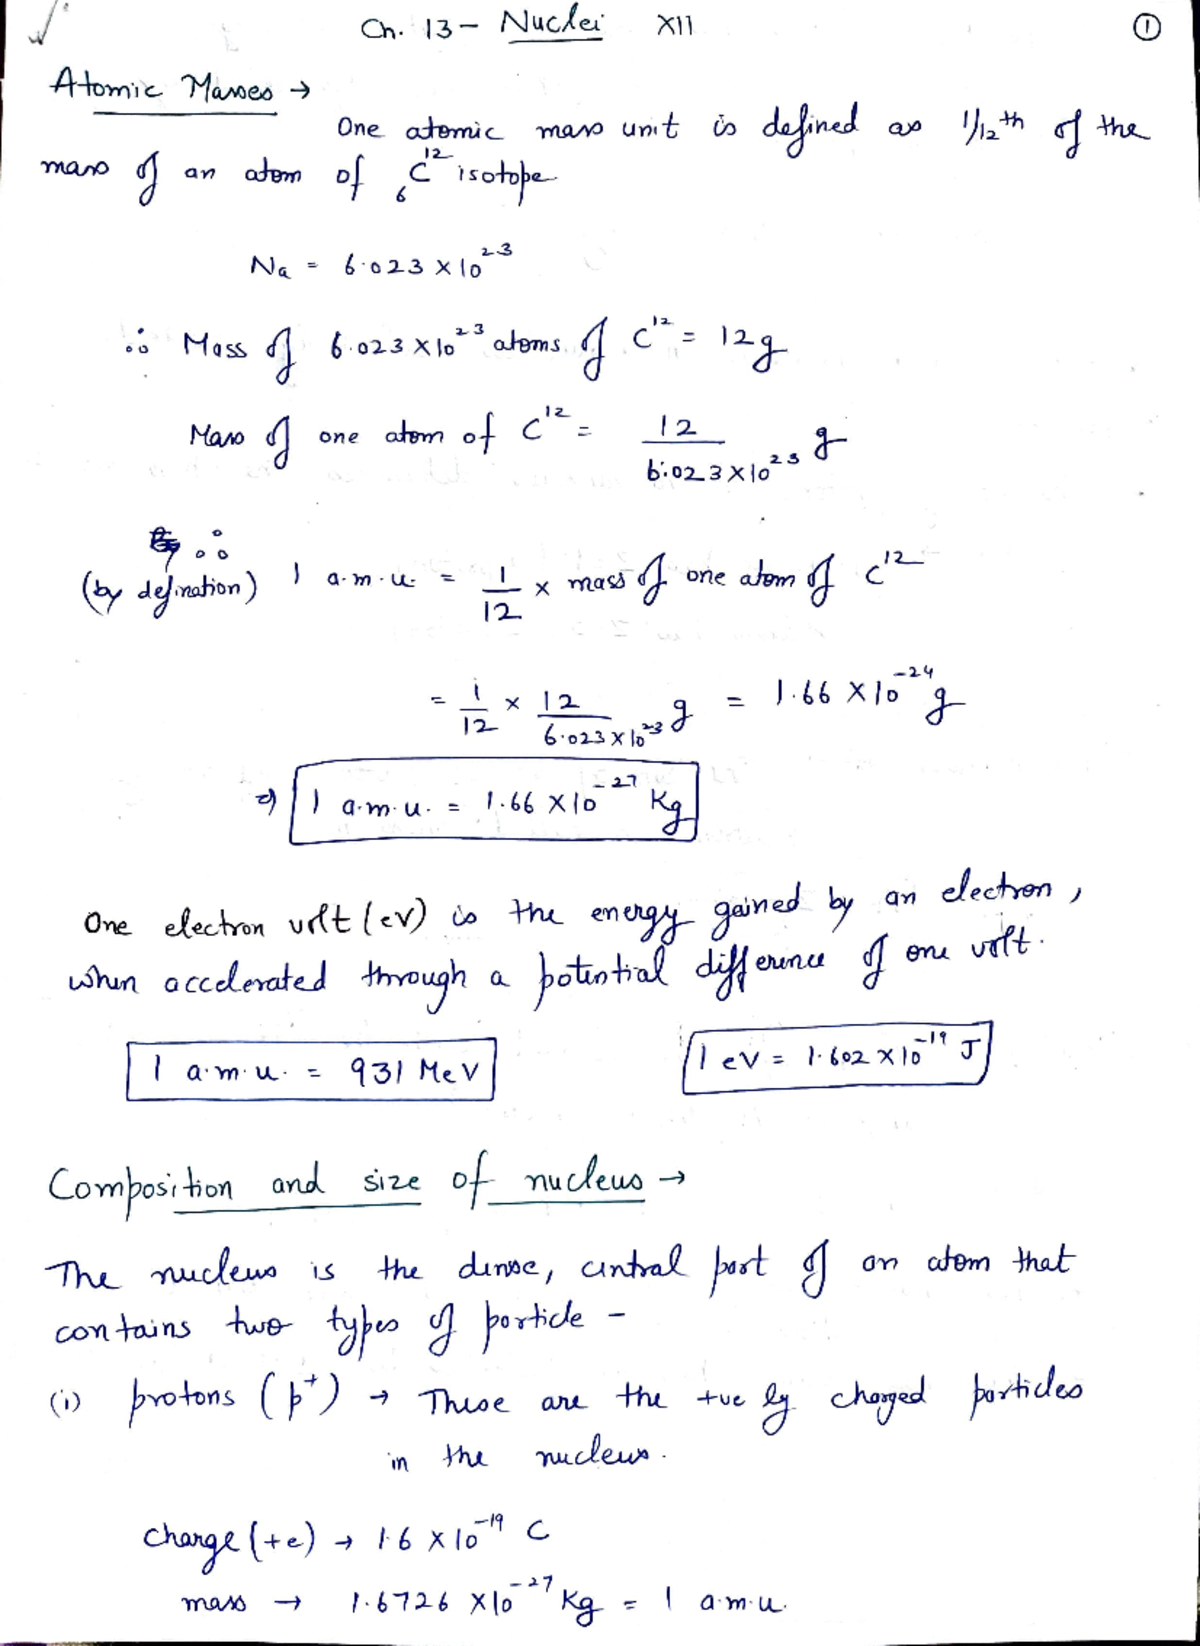 Ch. 13 - Nuclei XII ①
Atomic Masses →
One atomic mass unit is defined as 1/12th of the
mass of an atom of ₆C¹² isotope
Na = 6.023 × 10²³
∴ Mass of 6.023 × 10²³ atoms of C¹² = 12g
Mass of one atom of C¹² = 12 / 6.023 × 10²³ g
∴
(by defination) 1 a.m.u. = 1/12 × mass of one atom of C¹²
= 1/12 × 12 / 6.023 × 10²³ g = 1.66 × 10⁻²⁴ g
⇒ 1 a.m.u. = 1.66 × 10⁻²⁷ Kg
One electron volt (eV) is the energy gained by an electron,
when accelerated through a potential difference of one volt.
1 a.m.u. = 931 MeV 1 eV = 1.602 × 10⁻¹⁹ J
Composition and size of nucleus →
The nucleus is the dense, central part of an atom that
contains two types of particle -
(i) protons (p⁺) → These are the +ve ly charged particles
in the nucleus.
charge (+e) → 1.6 × 10⁻¹⁹ C
mass → 1.6726 × 10⁻²⁷ Kg = 1 a.m.u.